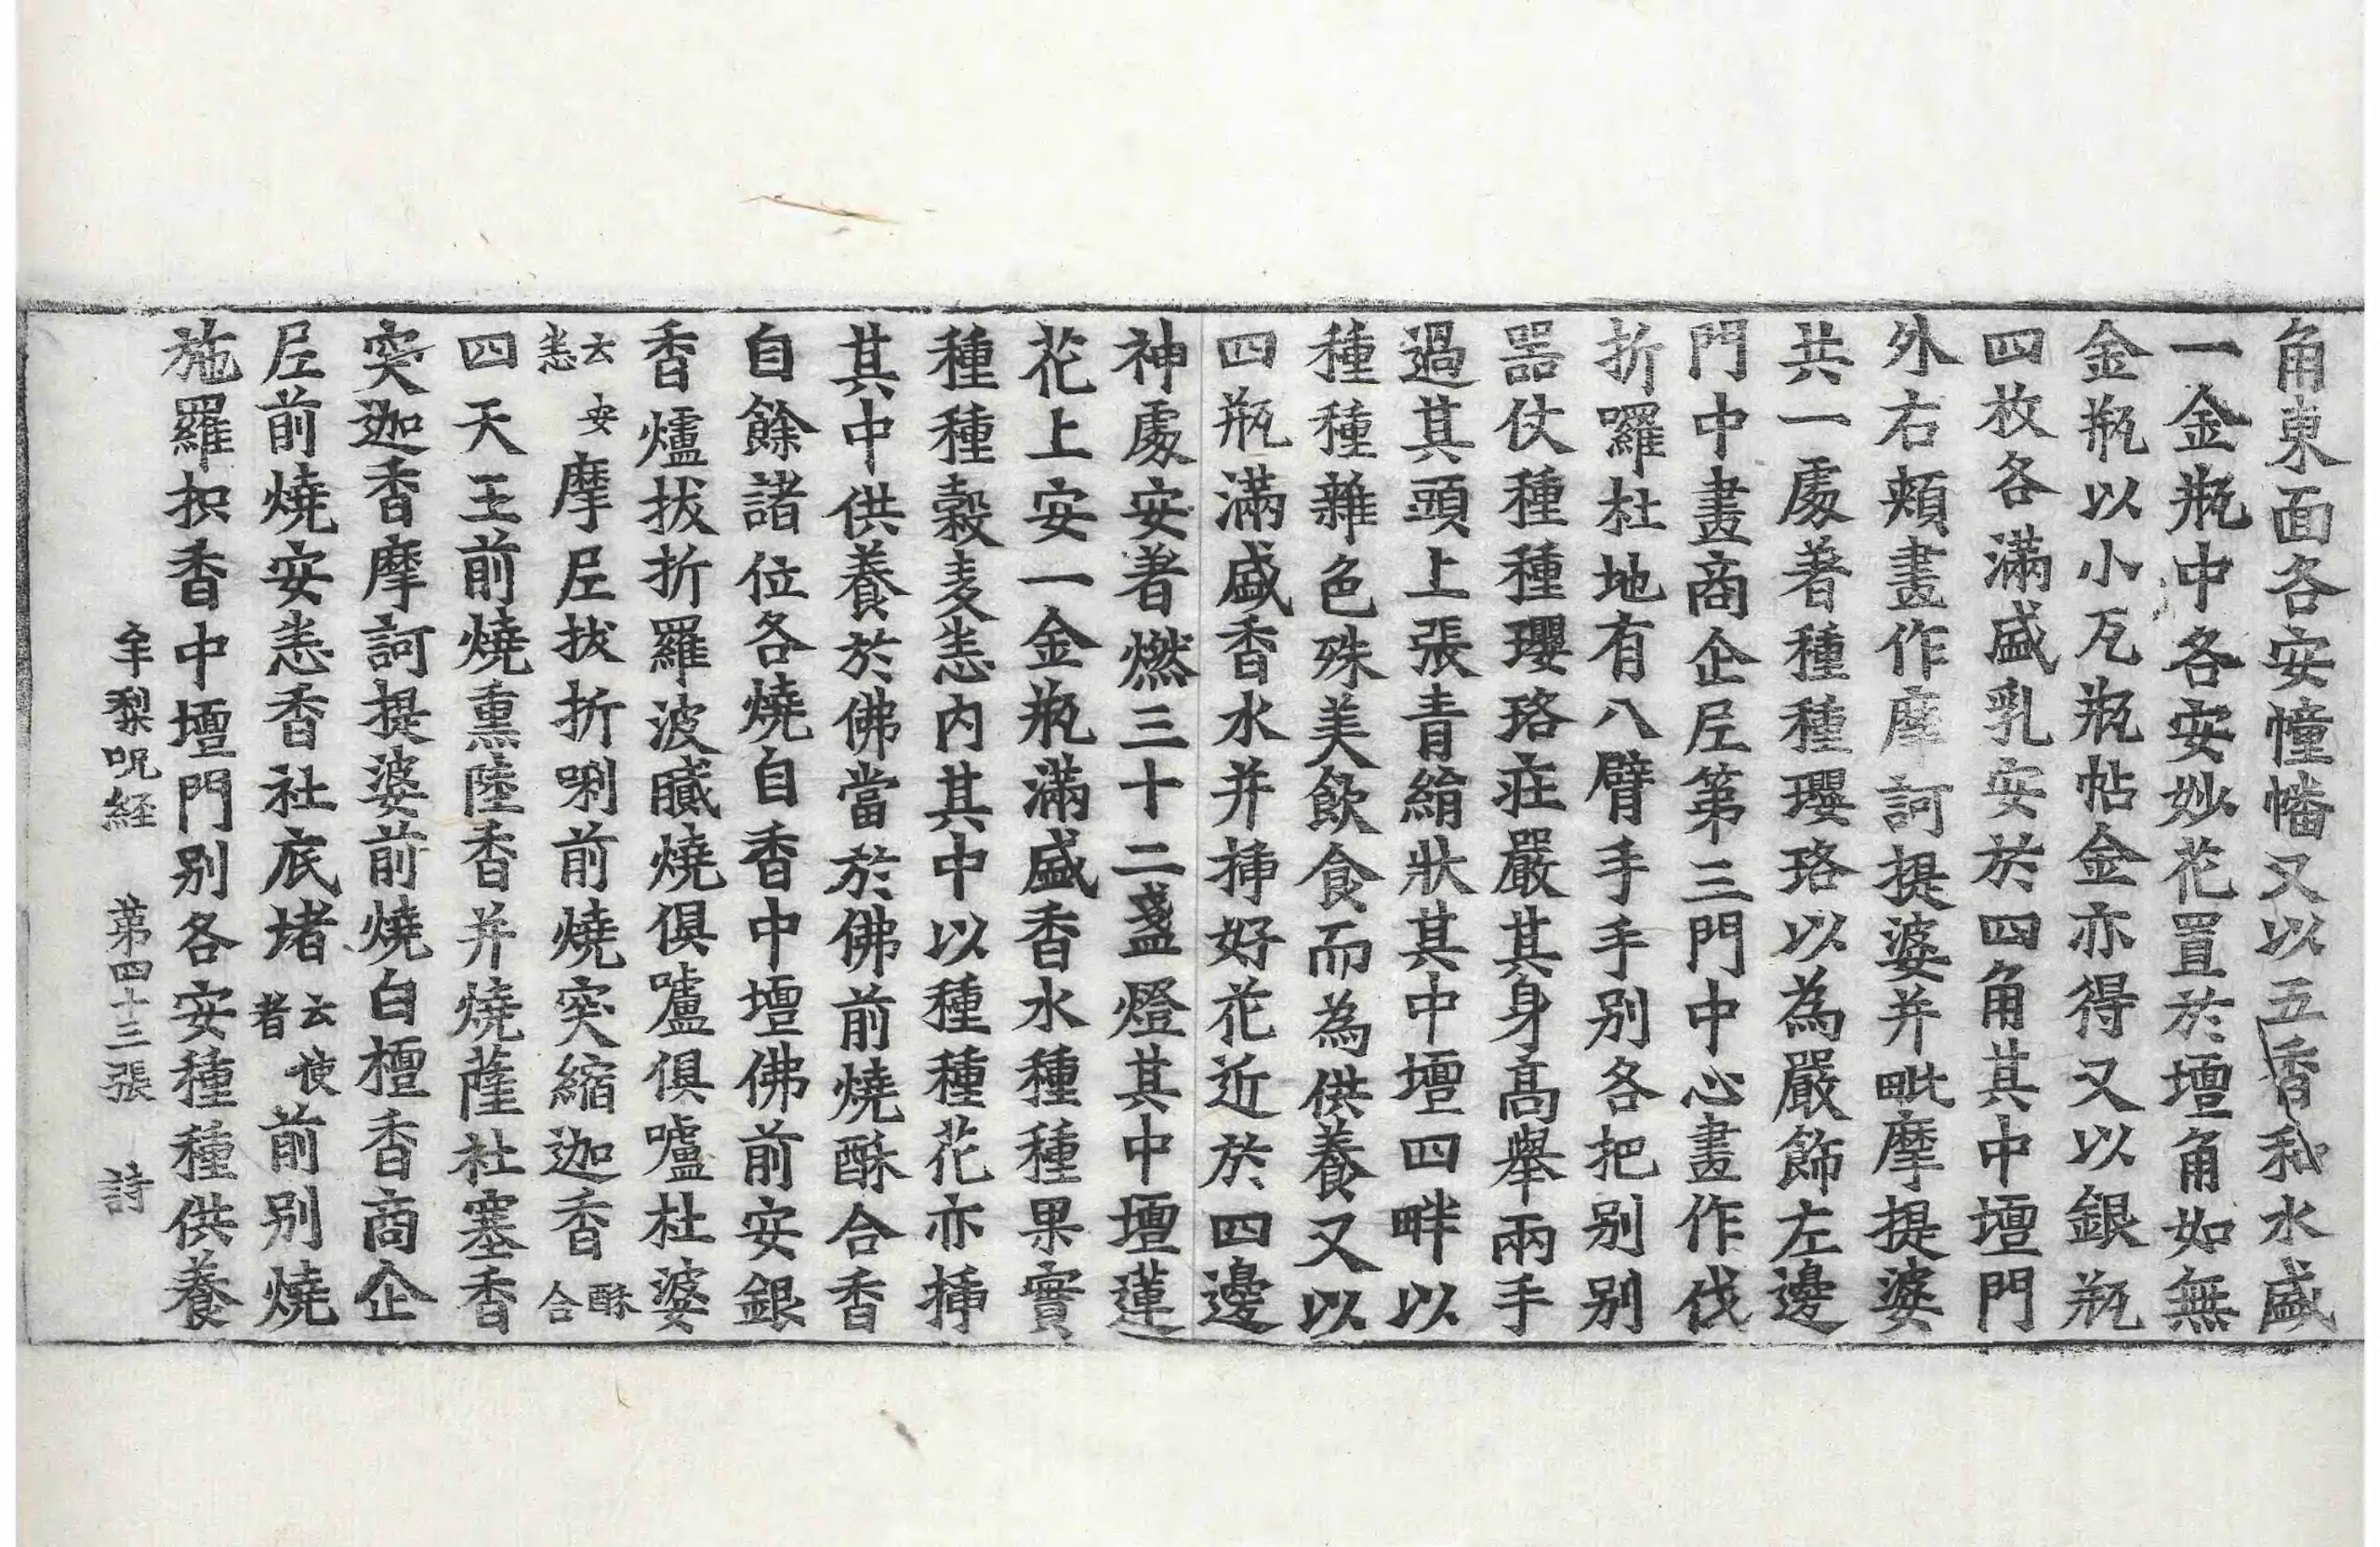 角東面各安幢幡又以五香和水盛
一金瓶中各安妙花置於壇角如無
金瓶以小瓦瓶帖金亦得又以銀瓶
四枚各滿盛乳安於四角其中壇門
外右頰畫作摩訶提婆并毗摩提婆
共一處著種種瓔珞以為嚴飾左邊
門中畫商企𡰱第三門中心畫作伐
折囉杜地有八臂手手別各把別別
器仗種種瓔珞莊嚴其身高舉兩手
過其頭上張青絹狀其中壇四畔以
種種雜色殊美飲食而為供養又以
四瓶滿盛香水并揷好花近於四邊
神處安著燃三十二盞燈其中壇蓮
花上安一金瓶滿盛香水種種果實
種種穀麦恙內其中以種種花亦揷
其中供養於佛當於佛前燒酥合香
自餘諸位各燒自香中壇佛前安銀
香爐拔折羅波𦢊燒俱嚧俱嚧杜婆
去安恙摩𡰱拔折唎前燒突縮迦香酥合
四天王前燒熏陸香并燒薩杜塞香
突迦香摩訶提婆前燒白檀香商企
𡰱前燒安恙香社底堵去使者前別燒
施羅枳香中壇門別各安種種供養
牟梨呪経 第四十三張 詩